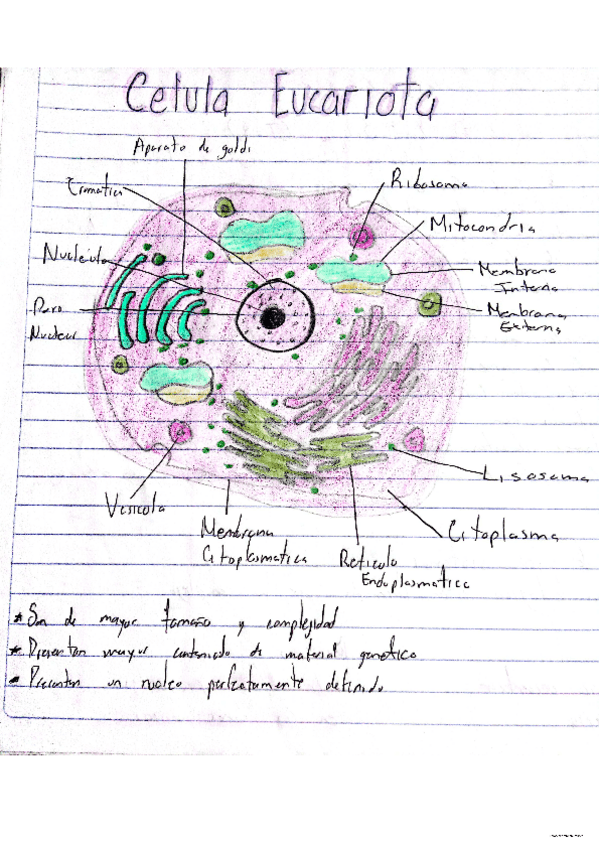 Celula Eucariota
Aparato de goldi
Cromatica
Ribosoma
Mitocondria
Nucleolo
Membrana
Interna
Membrana
Externa
Poro
Nuclear
Lisosoma
Vesicola
Citoplasma
Membrana
Citoplasmatica
Reticulo
Endoplasmatico
* Son de mayor tamaño y complejidad
* Presentan mayor contenido de material genetico
* Presentan un nucleo perfectamente definido